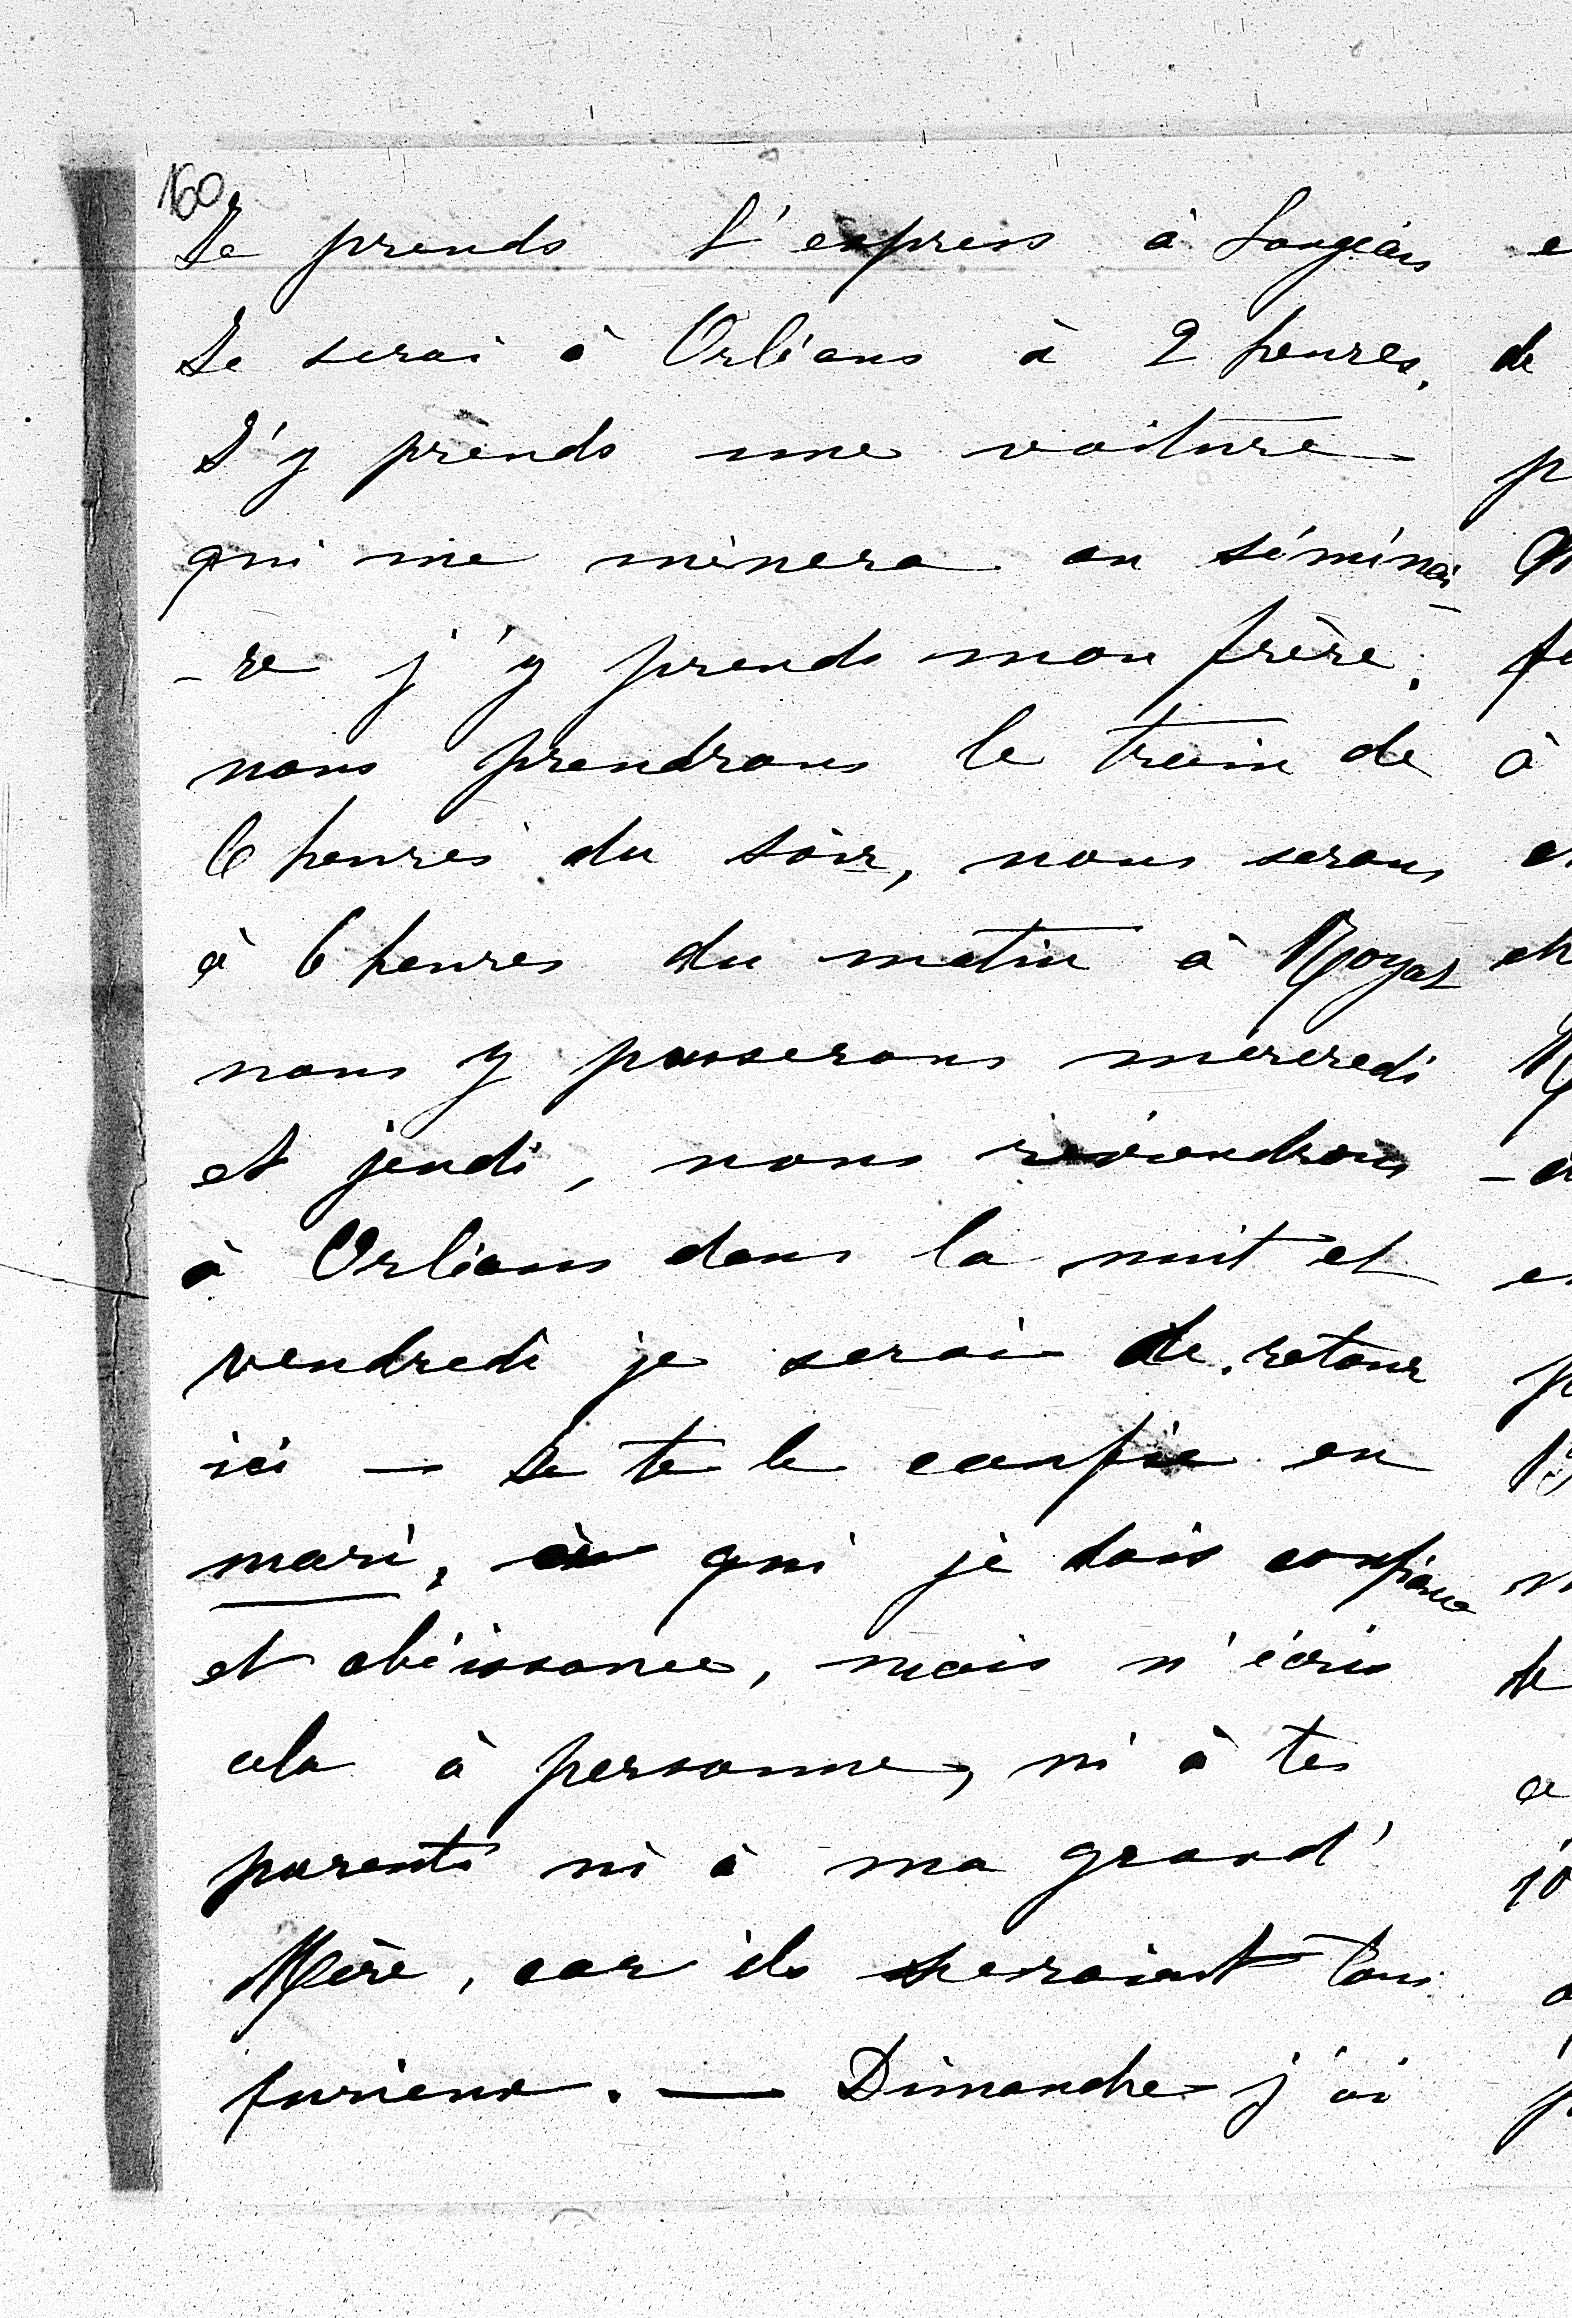 160
Je prends l'express à Langeais
Je serai à Orléans à 2 heures,
J'y prends une voiture
qui me mènera au séminai
-re j'y prends mon frère,
nous prendrons le train de
6 heures du soir, nous serons
à 6 heures du matin à Royat
nous y passerons mercredi
et jeudi, nous reviendrons
à Orléans dans la nuit et
vendredi je serai de retour
ici — Je te le confie en
mari, à qui je dois confiance
et obéissance, mais n'écris
cela à personne, ni à tes
parents ni à ma grand'
Mère, car ils seraient tous
furieux. — Dimanche j'ai